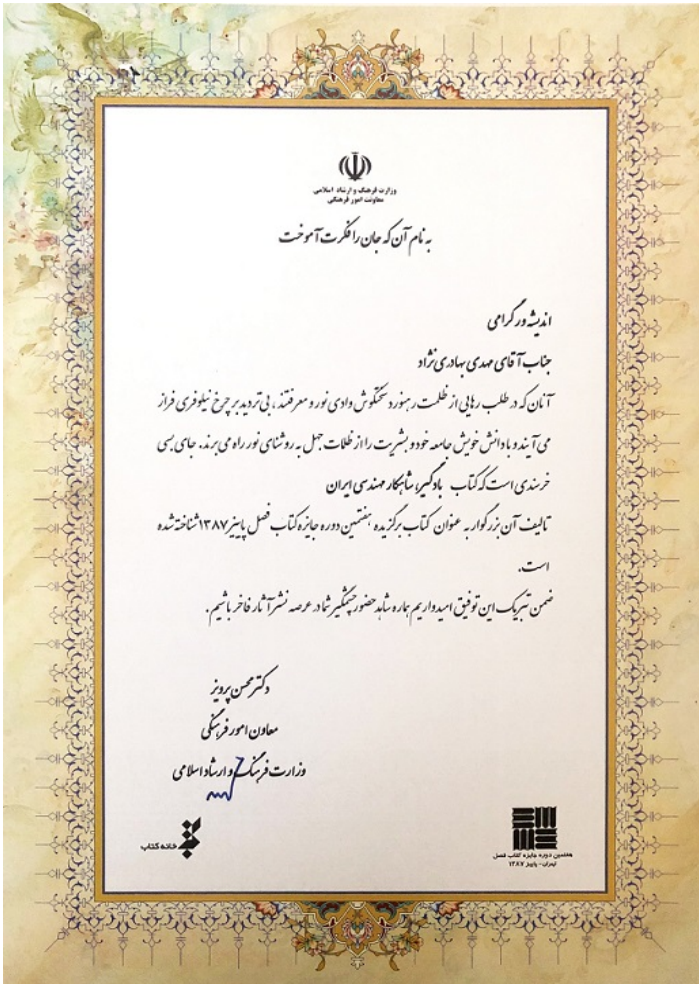 وزارت فرهنگ و ارشاد اسلامی
معاونت امور فرهنگی
به نام آن که جان را فکرت آموخت
اندیشه ور گرامی
جناب آقای مهدی بهادری نژاد
آنان که در طلب رهایی از ظلمت رهنورد سختکوش وادی نور و معرفتند، بی تردید بر چرخ نیلوفری فراز
می آیند و با دانش خویش جامعه خود و بشریت را از ظلمات جهل به روشنای نور راه می برند. جای بسی
خرسندی است که کتاب بادگیر، شاهکار مهندسی ایران
تالیف آن بزرگوار به عنوان کتاب برگزیده هفتمین دوره جایزه کتاب فصل پاییز ۱۳۸۷ شناخته شده
است.
ضمن تبریک این توفیق امیدواریم هماره شاهد حضور چشمگیر شما در عرصه نشر آثار فاخر باشیم.
دکتر محسن پرویز
معاون امور فرهنگی
وزارت فرهنگ و ارشاد اسلامی
خانه کتاب
هفتمین دوره جایزه کتاب فصل
تهران - پاییز ۱۳۸۷